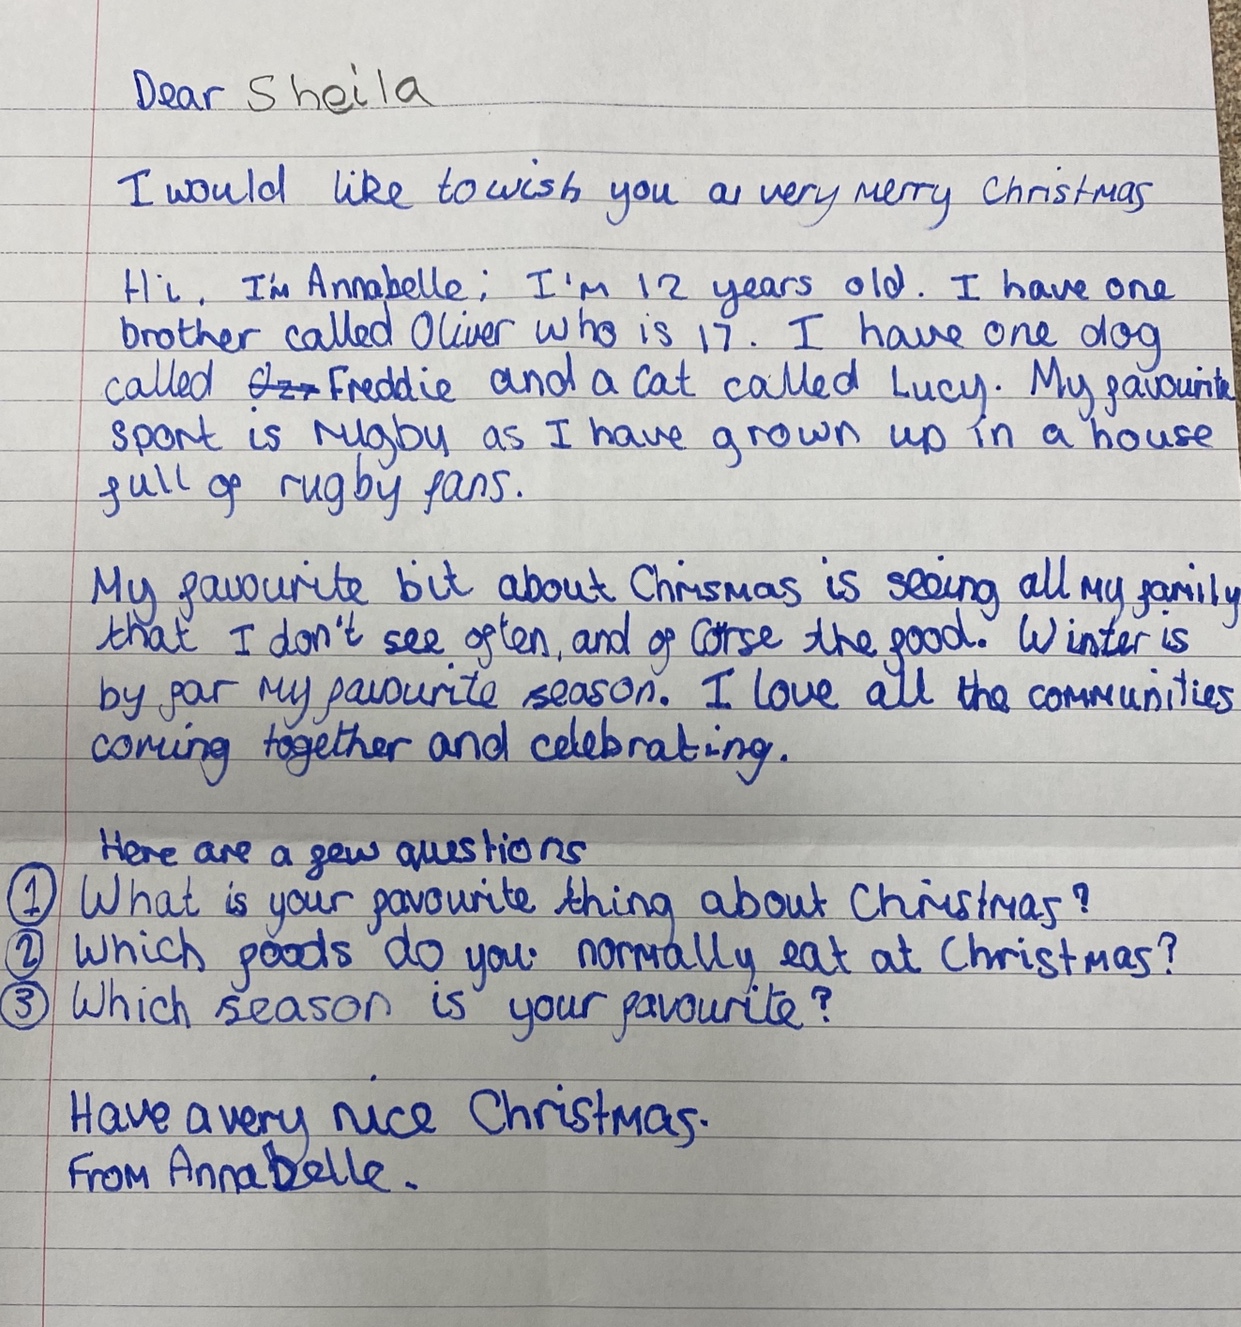 Dear Sheila
I would like to wish you a very merry Christmas
Hi, I'm Annabelle; I'm 12 years old. I have one
brother called Oliver who is 17. I have one dog
called Freddie and a cat called Lucy. My favourite
sport is rugby as I have grown up in a house
full of rugby fans.
My favourite bit about Chrismas is seeing all my family
that I don't see often, and of corse the food. Winter is
by far my favourite season. I love all the communities
coming together and celebrating.
Here are a few questions
① What is your favourite thing about Christmas?
② Which foods do you normally eat at Christmas?
③ Which season is your favourite?
Have a very nice Christmas.
From Annabelle.